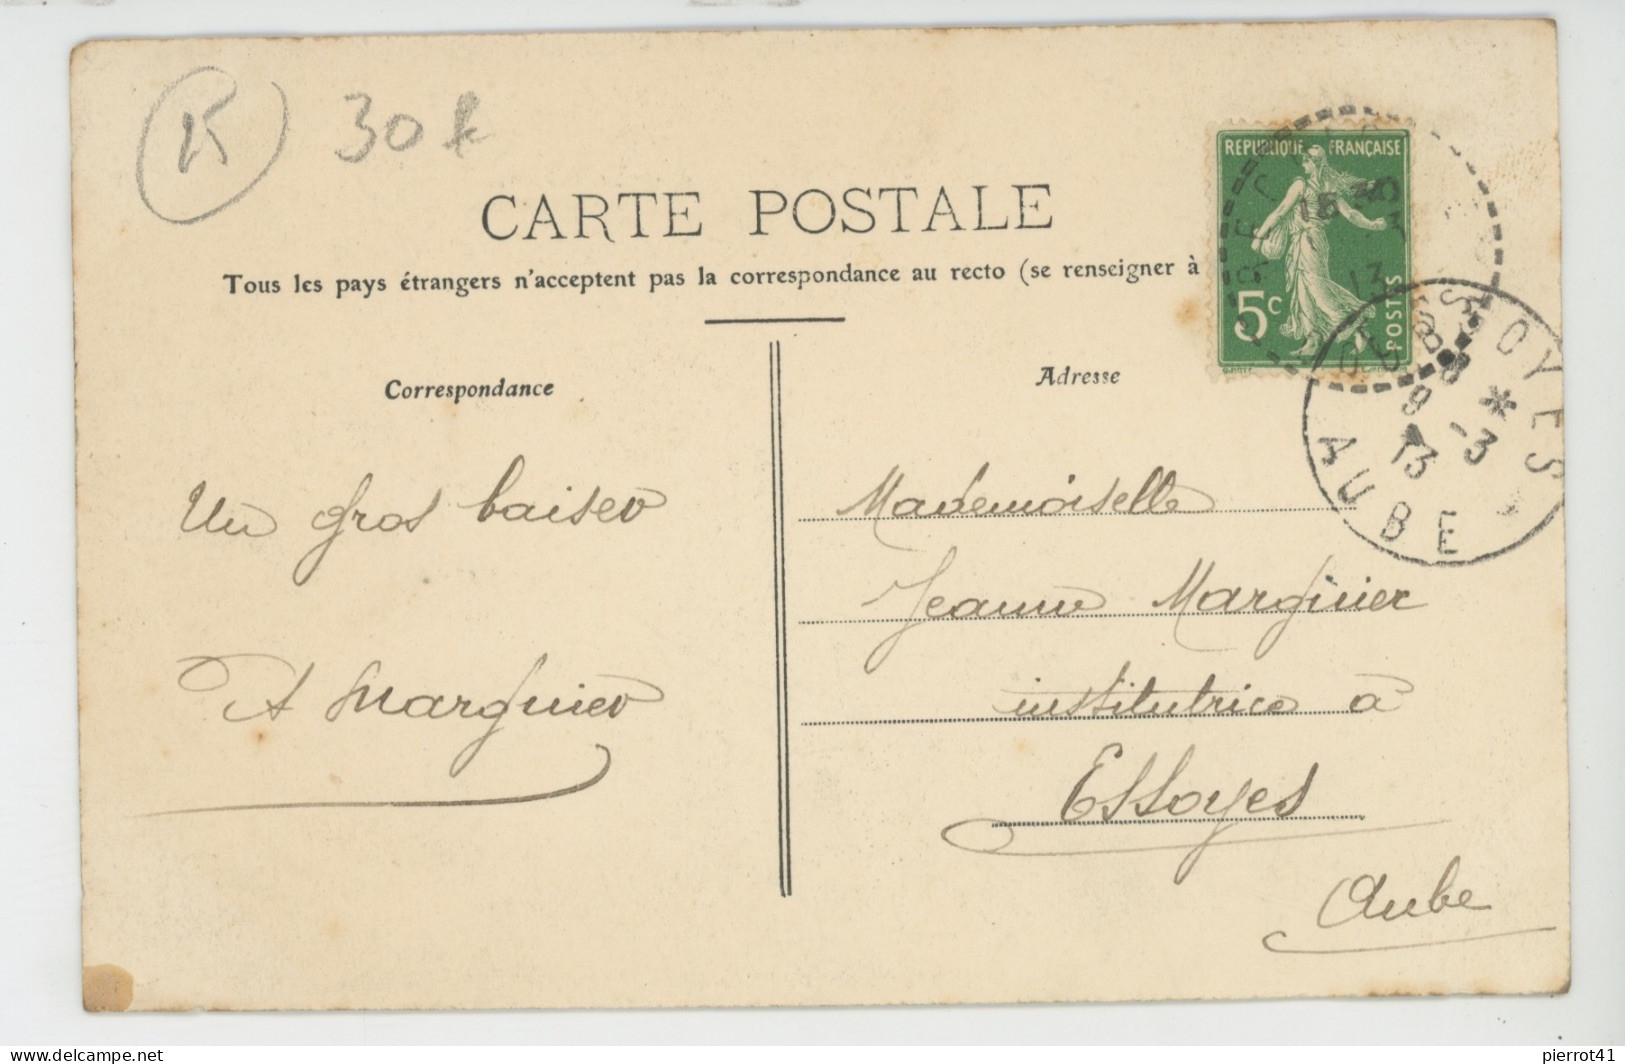 R 30f
CARTE POSTALE
Tous les pays étrangers n'acceptent pas la correspondance au recto (se renseigner à
Correspondance
Un gros baiser
A Marguier
RÉPUBLIQUE FRANÇAISE
5c
POSTES
ESSOYES
8 *
9 -3
13
AUBE
Adresse
Mademoiselle
Jeanne Marguier
institutrice à
Essoyes
Aube
delcampe.net
pierrot41